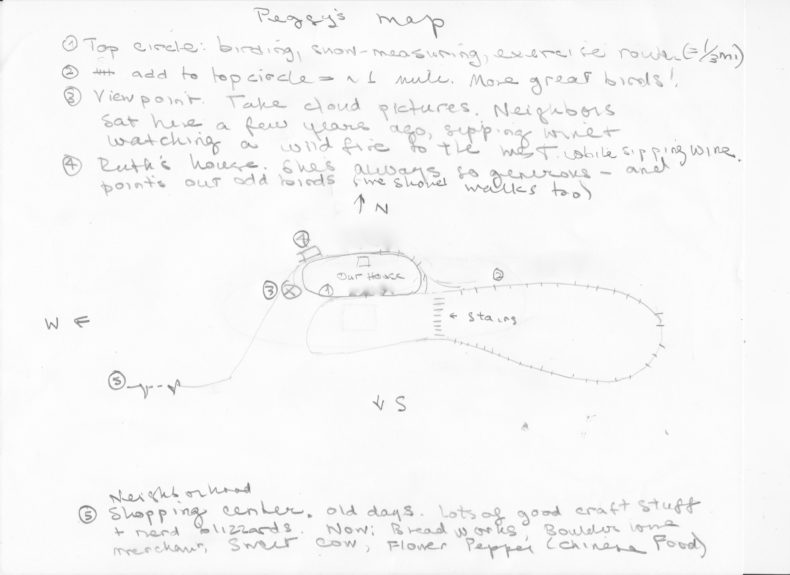 Peggy's map
① Top circle: birding, snow-measuring, exercise route (= 1/3 mi)
② add to top circle = ~ 1 mile. More great birds!
③ Viewpoint. Take cloud pictures. Neighbors
sat here a few years ago, sipping wine +
watching a wild fire to the west. while sipping wine.
④ Ruth's house. She's always so generous - and
points out odd birds (we shovel walks too)
↑ N
④
Our House
②
③ ①
W ←
← Stairs
⑤
↓ S
Neighborhood
⑤ Shopping center. old days. lots of good craft stuff
+ blizzards. Now: Breadworks, Boulder
merchant, Sweet Cow, Flower Pepper (Chinese Food)